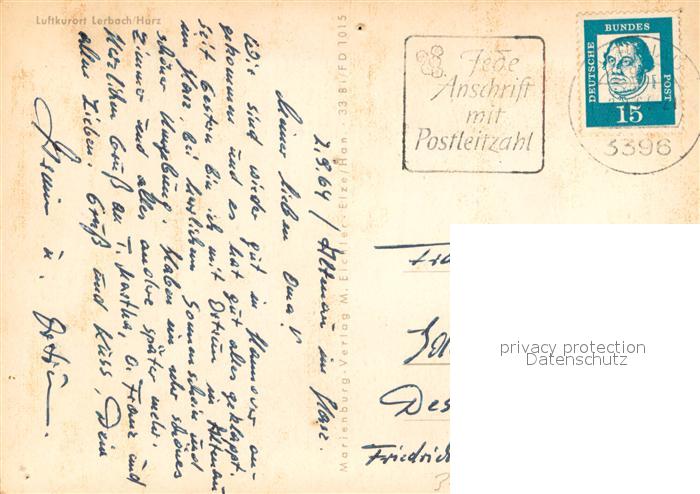 Luftkurort Lerbach/Harz
2.9.64 / Altenau im Harz.
Meine lieben Oma!
Wir sind wieder gut in Hannover an-
gekommen und es hat gut alles geklappt.
Seit Gestern bin ich mit in Altenau
im Harz bei herrlichem Sonnenschein und
schöner Umgebung. Haben ein sehr schönes
Zimmer und alles andre später mehr.
Herzlichen Gruß an T. Martha, O. Franz und
allen Lieben. Gruß und Kuss, Dein
u.
Marienburg-Verlag M. Eichler - Elze/Han. 33 Bi/FD 1015
Jede
Anschrift
mit
Postleitzahl
DEUTSCHE BUNDES POST
15
3396
Des
Friedric
privacy protection
Datenschutz